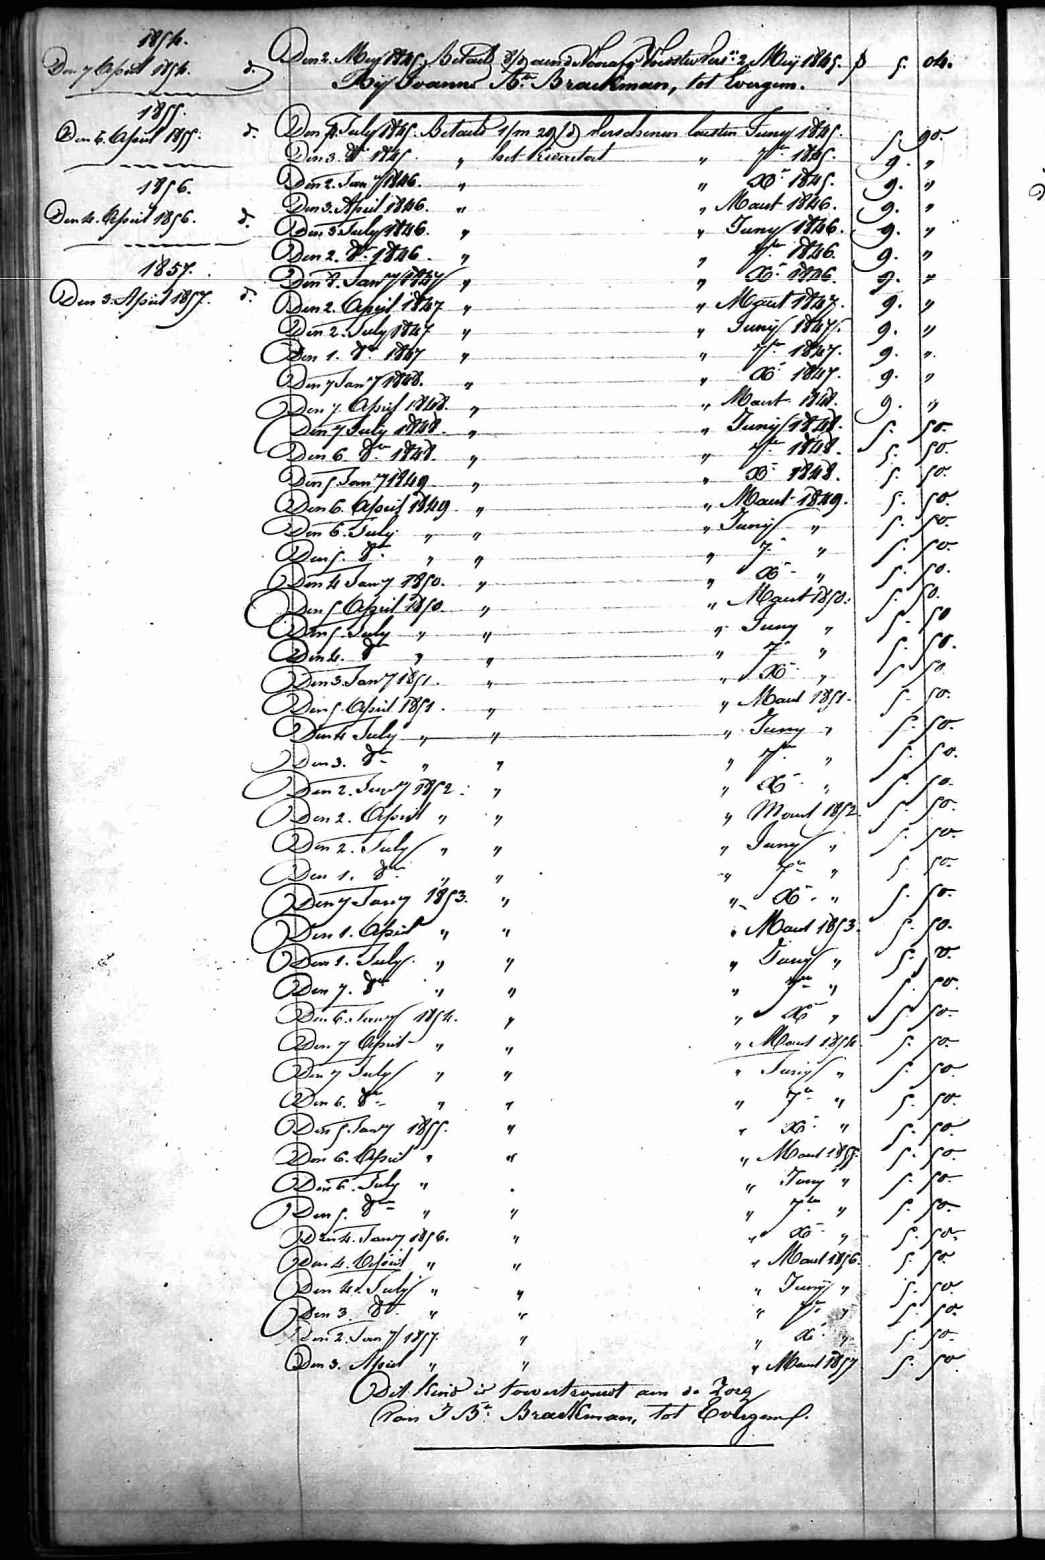 1854.
Den 7 April 1854. d.
1855.
Den 6. April 1855. d.
1856.
Den 4. April 1856. d.
1857.
Den 3. April 1857. d.
Den 2. Meij 1845. Betaelt aen de 2 Meij 1845. 5. 04.
Bij Joanne Bte Braekman, tot Evergem.
Den 4. July 1845. Betaelt verschenen lausten Juny 1845. 5. 90.
Den 3. 8er 1845. " het kwartael " 7er 1845. 9. "
Den 2. Jany 1846. " " Xr 1845. 9. "
Den 3. April 1846. " " Maert 1846. 9. "
Den 3 July 1846. " " Juny 1846. 9. "
Den 2. 8er 1846. " " 7er 1846. 9. "
Den 8. Jany 1847 " " Xr 1846. 9. "
Den 2. April 1847 " " Maert 1847. 9. "
Den 2. July 1847 " " Junij 1847. 9. "
Den 1. 8er 1847 " " 7er 1847. 9. "
Den 7 Jany 1848. " " Xr 1847. 9. "
Den 7. April 1848. " " Maert 1848. 9. "
Den 7 July 1848. " " Junij 1848. 5. 50.
Den 6. 8er 1848. " " 7er 1848. 5. 50.
Den 5 Jany 1849 " " Xr 1848. 5. 50.
Den 6. April 1849 " " Maert 1849. 5. 50.
Den 6. July " " " Junij " 5. 50.
Den 5. 8er " " " 7r " 5. 50.
Den 4 Jany 1850. " " Xr " 5. 50.
Den 5 April 1850. " " Maert 1850. 5. 50.
Den 5. July " " " Juny " 5. 50
Den 4. 8er " " " 7r " 5. 50.
Den 3. Jany 1851. " " Xr " 5. 50.
Den 5. April 1851. " " Maert 1851. 5. 50.
Den 4 July " " " Juny " 5. 50.
Den 3. 8er " " " 7er " 5. 50.
Den 2. Jany 1852. " " Xr " 5. 50.
Den 2. April " " " Maert 1852. 5. 50.
Den 2. July " " " Juny " 5. 50.
Den 1. 8er " " " 7er " 5. 50.
Den 7 Jany 1853. " " Xr " 5. 50.
Den 1. April " " " Maert 1853. 5. 50.
Den 1. July " " " Juny " 5.
Den 7. 8er " " " 7er " 5. 50.
Den 6. Jany 1854. " " Xr " 5. 50.
Den 7 April " " " Maert 1854. 5. 50.
Den 7 July " " " Junij " 5. 50.
Den 6. 8er " " " 7r " 5. 50.
Den 5. Jany 1855. " " Xr " 5. 50.
Den 6. April " " " Maert 1855. 5. 50.
Den 6. July " " " Juny " 5. 50.
Den 5. 8er " " " 7er " 5. 50.
Den 4. Jany 1856. " " Xr " 5. 50.
Den 4. April " " " Maert 1856. 5. 50.
Den 4. July " " " Juny " 5. 50
Den 3. 8er " " " 7r " 5. 50.
Den 2. Jany 1857. " " Xr " 5. 50.
Den 3. April " " " Maert 1857 5. 50.
Dit kind is toevertrouwt aen de Zorg
van J Bte Braekman, tot Evergem.